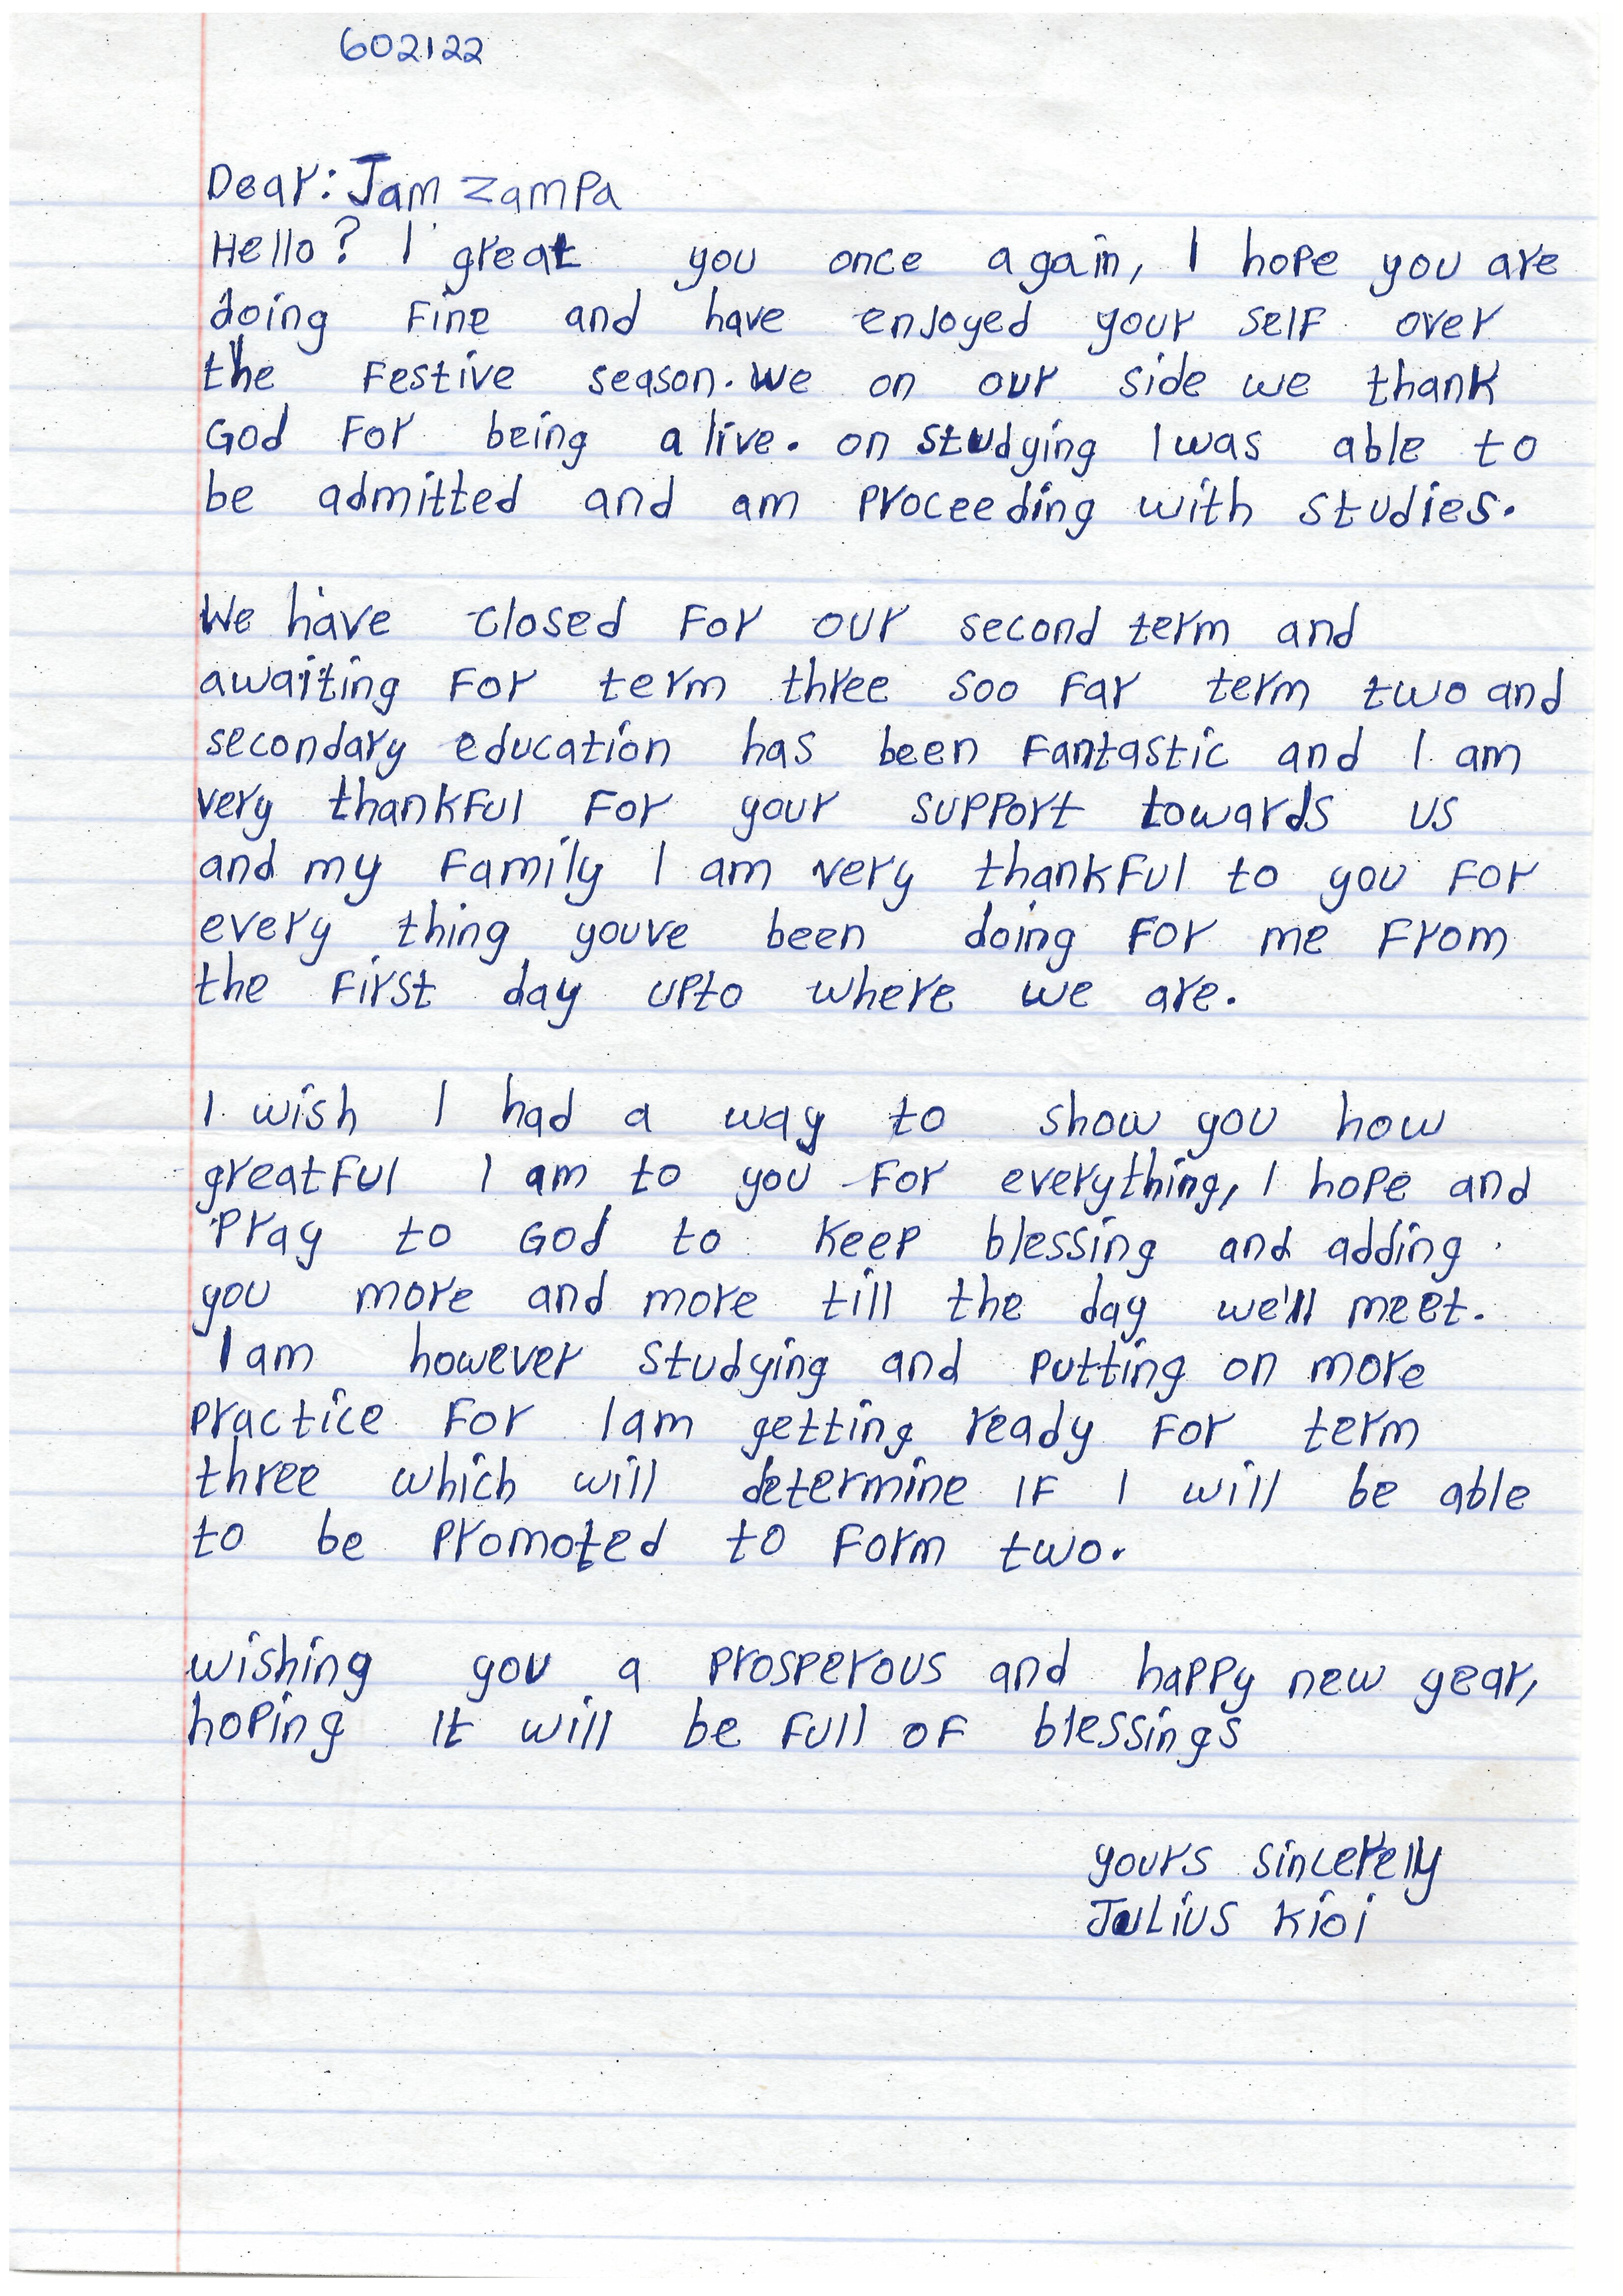 602122
Dear: Jam Zampa
Hello? I great you once again, I hope you are
doing Fine and have enjoyed your self over
the Festive season. We on our side we thank
God For being alive. on studying I was able to
be admitted and am proceeding with studies.
We have closed For our second term and
awaiting For term three soo Far term two and
secondary education has been Fantastic and I am
very thankful For your support towards us
and my Family I am very thankful to you For
every thing youve been doing For me From
the First day upto where we are.
I wish I had a way to show you how
greatful I am to you For everything, I hope and
Pray to God to keep blessing and adding
you more and more till the day we'll meet.
I am however studying and putting on more
practice For I am getting ready For term
three which will determine IF I will be able
to be promoted to Form two.
wishing you a prosperous and happy new year,
hoping It will be Full oF blessings
yours sincerelly
Julius Kioi